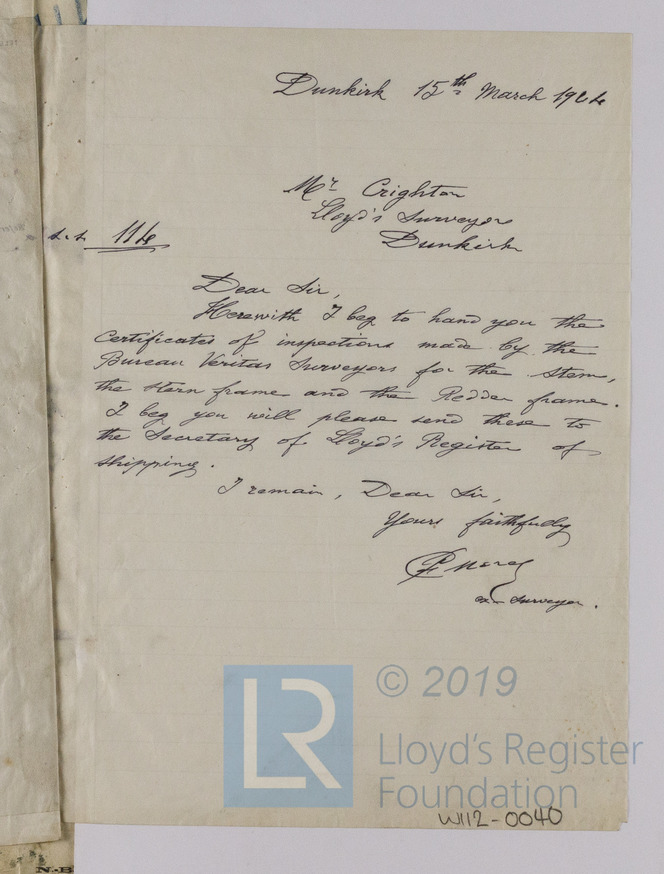 Dunkirk 15th March 1924
Mr Crighton
Lloyd's Surveyor
Dunkirk
114
Dear Sir,
Herewith I beg to hand you the
Certificates of inspections made by the
Bureau Veritas Surveyors for the stem,
the stern frame and the Redder frame.
I beg you will please send these to
the Secretary of Lloyd's Register of
Shipping.
I remain, Dear Sir,
Yours faithfully
ex-Surveyor.
LR
© 2019
Lloyd's Register
Foundation
W112-0040
N.B